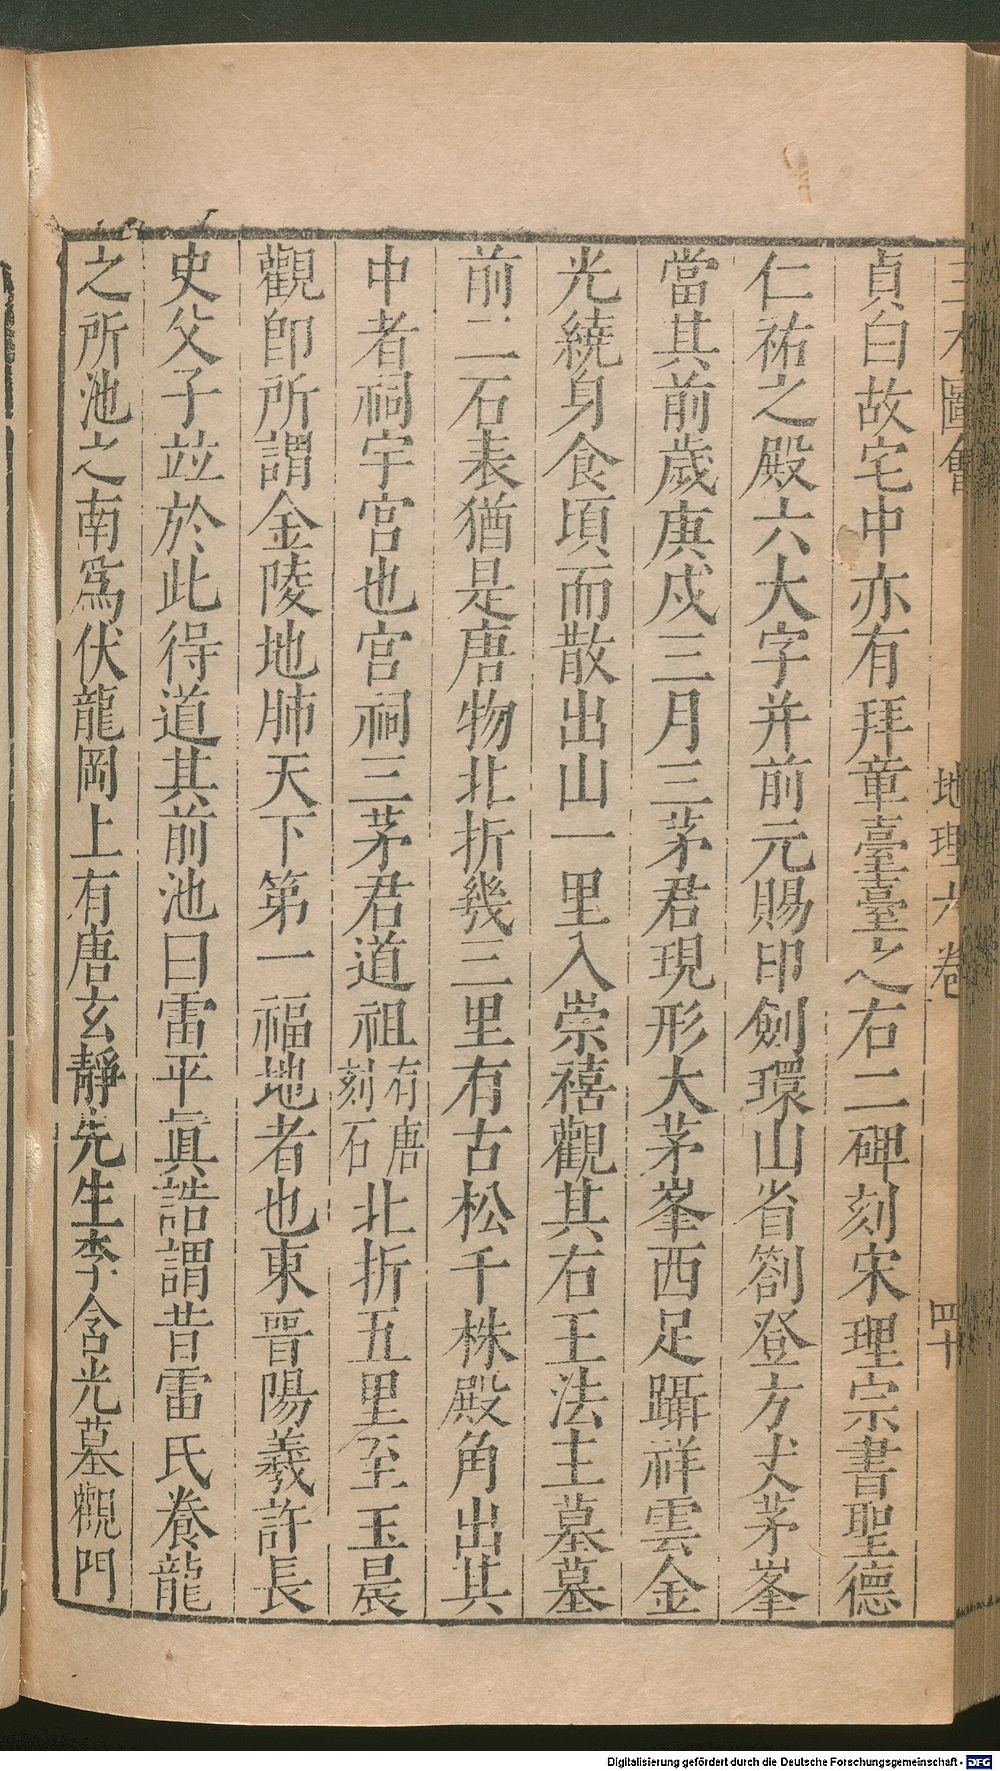 三才圖會 地理六卷 四十
貞白故宅中亦有拜章臺臺之右二碑刻宋理宗書聖德
仁祐之殿六大字并前元賜印劍環山省劄登方丈茅峯
當其前歲庚戍三月三茅君現形大茅峯西足躡祥雲金
光繞身食頃而散出山一里入崇禧觀其右王法主墓墓
前二石表猶是唐物北折幾三里有古松千株殿角出其
中者祠宇宮也宮祠三茅君道祖有唐刻石北折五里至玉晨
觀卽所謂金陵地肺天下第一福地者也東晉陽羲許長
史父子竝於此得道其前池曰雷平眞誥謂昔雷氏養龍
之所池之南爲伏龍岡上有唐玄靜先生李含光墓觀門
Digitalisierung gefördert durch die Deutsche Forschungsgemeinschaft - DFG